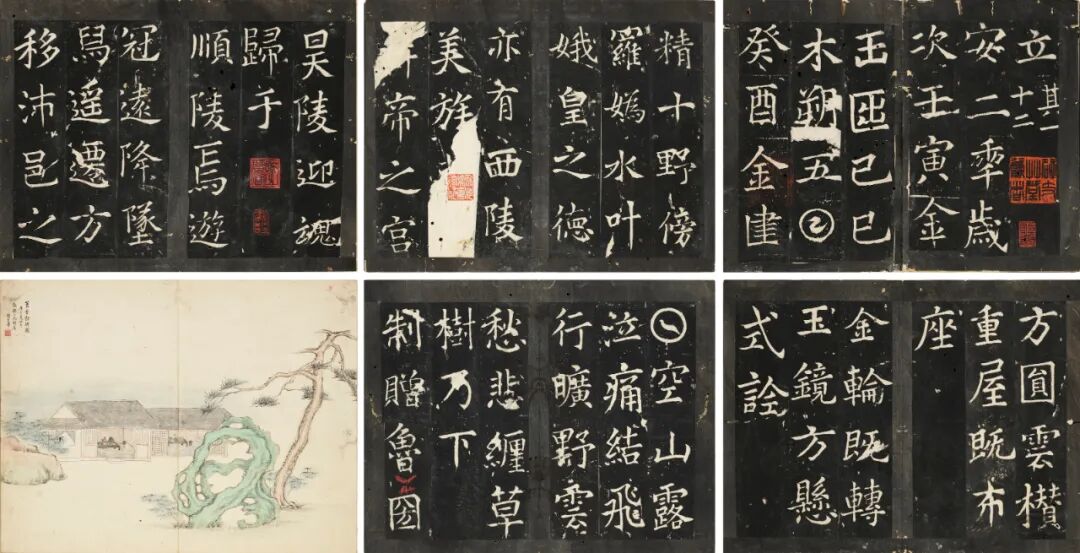 立 其一十二
安二秊歲
次壬寅金
𠙺匨己巳
木朔五𡆠
癸酉金建
精十野傍
羅媯水叶
娥皇之德
亦有西陵
美族
帝之宮
昊陵迎魂
歸于
順陵焉遊
冠遠降墜
舄遥遷方
移沛邑之
方圓雲櫕
重屋既布
座
金輪既轉
玉鏡方懸
式詮
𡆠空山露
泣痛結飛
行曠野雲
愁悲纏草
樹乃下
制贈魯圀